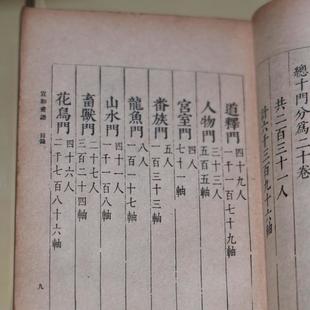 總十門分爲二十卷
共二百三十一人
計六千三百九十六軸
道釋門
四十九人
一千一百七十九軸
人物門
三十三人
五百五軸
宮室門
四人
七十一軸
番族門
五人
一百三十三軸
龍魚門
八人
一百一十七軸
山水門
四十一人
一千一百八軸
畜獸門
二十七人
三百二十四軸
花鳥門
四十六人
二千七百八十六軸
宣和畫譜 目錄
九